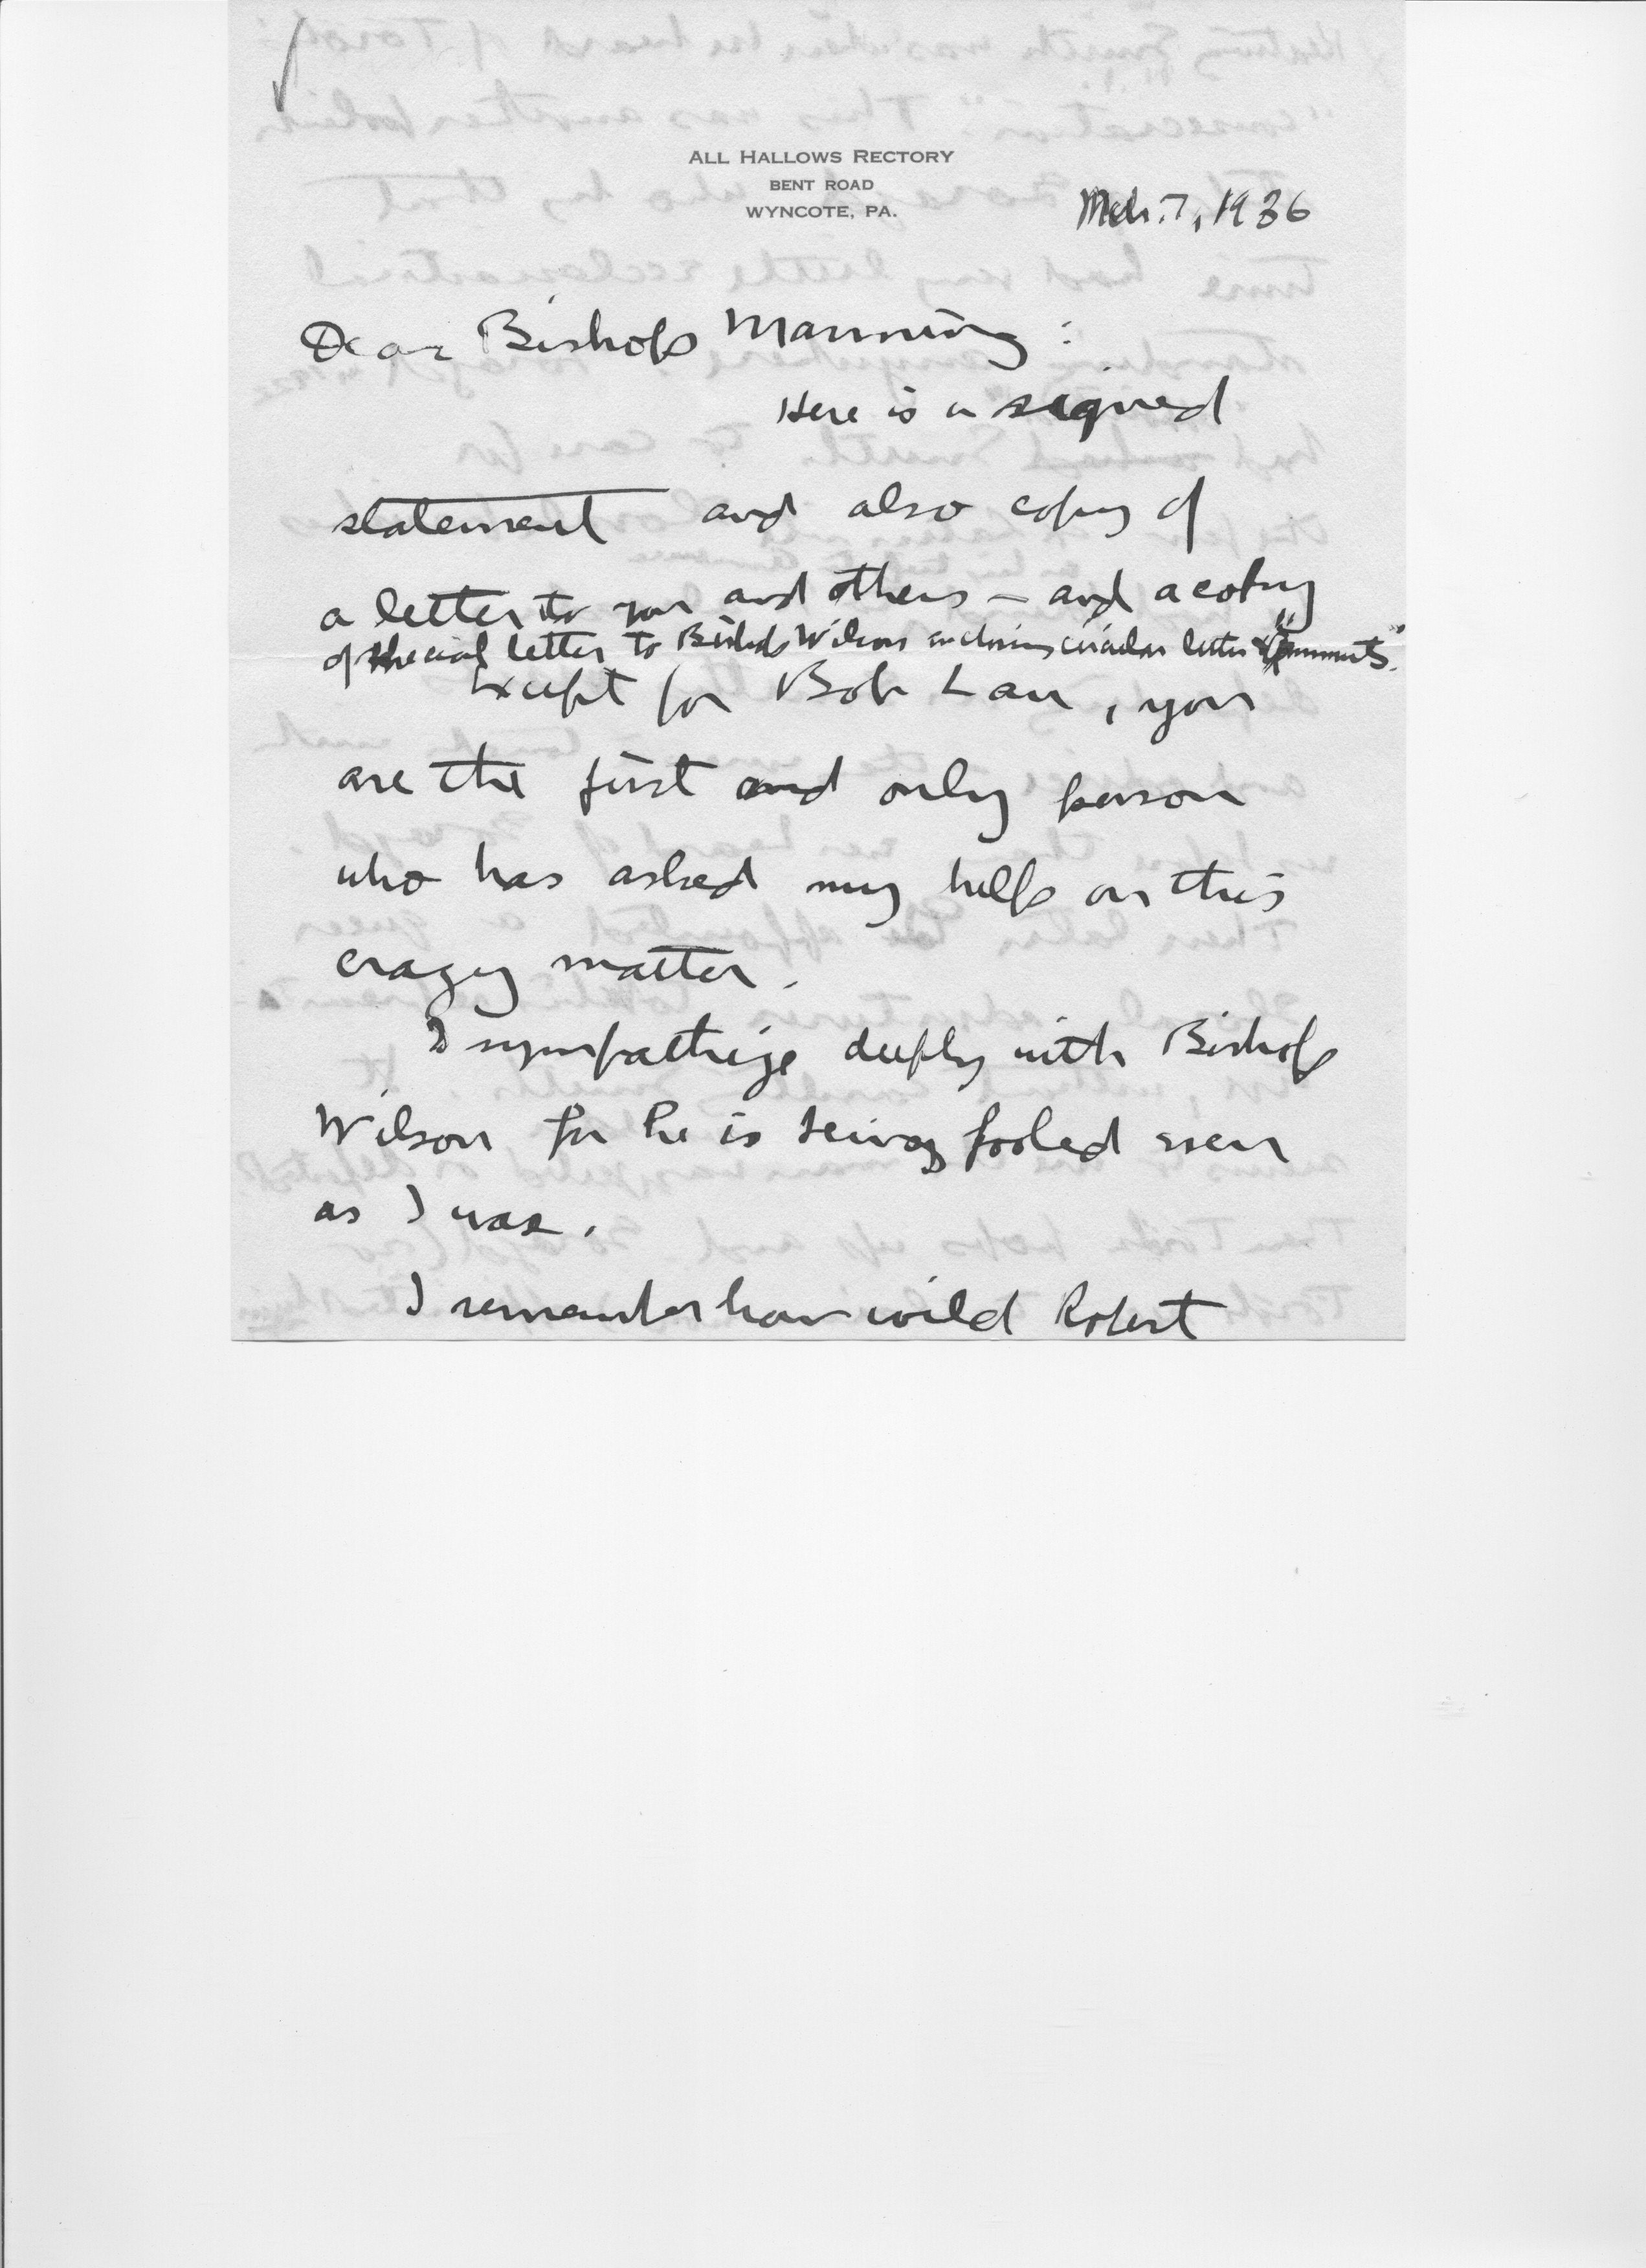 ALL HALLOWS RECTORY
BENT ROAD
WYNCOTE, PA.
Mch. 7, 1936
Dear Bishop Manning:
Here is a signed
statement and also copy of
a letter to you and others – and a copy
of special letter to Bishop Wilson enclosing circular letter & "Comments".
Except for Bob Lau, you
are the first and only person
who has asked my help on this
crazy matter.
I sympathize deeply with Bishop
Wilson for he is being fooled even
as I was.
I remember how wild Robert